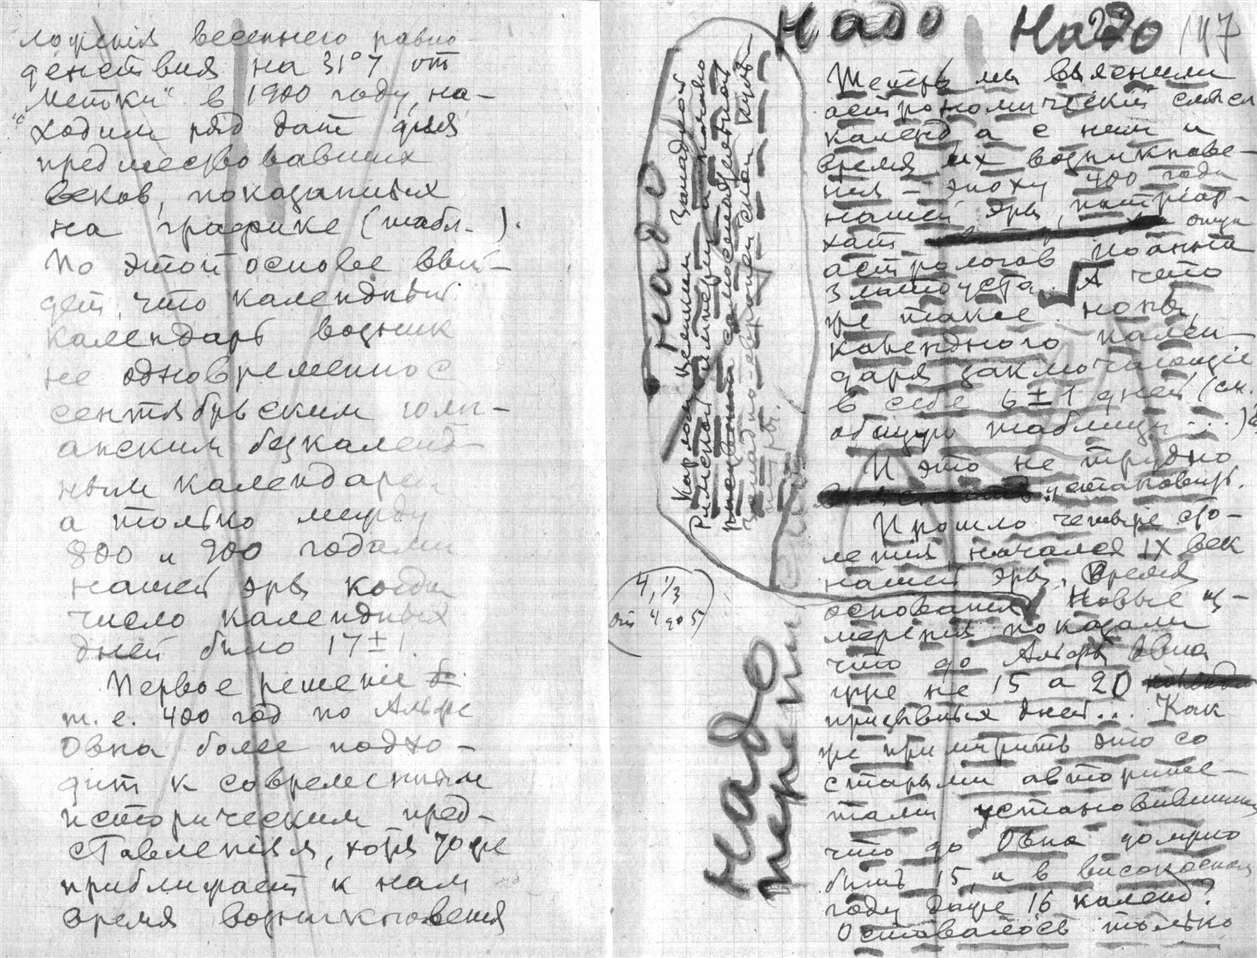 ложения весеннего равно-
денствия на 31°7 от
"метки" в 1900 году, на-
ходим ряд дат для
предшествовавших
веков, показанных
на графике (табл. ).
По этой основе вый-
дет, что календный
календарь возник
не одновременно с
сентябрьским юли-
анским безкаленд-
ным календарем
а только между
800 и 900 годами
нашей эры когда
число календных
дней было 17±1.
Первое решение
т.е. 400 год по Альфе
Овна более подхо-
дит к современным
историческим пред-
ставлениям, хотя тоже
приближает к нам
время возникновения
Надо Надо 147
22
Теперь мы выяснили
астрономический смысл
календ а с ним и
время их возникнове-
ния – эпоху 400 года
нашей эры, патриар-
хат отца
астрологов Иоанна
Златоуста. А что
же такое ноны
календного кален-
даря заключающие
в себе 6±1 дней (см.
общую таблицу ...)
И это не трудно
установить.
Прошло четыре сто-
летия начался IX век
нашей эры. Время
основания
Новые из-
мерения показали
что до Альфы Овна
уже не 15 а 20
призывных дней... Как
же примирить это со
старыми авторите-
тами установившими
что до Овна должно
быть 15, а в високосном
году даже 16 календ?
Оставалось только
Надо
Карлом Великим Западной
Римской империи и
Западно-европейской
эры.
4, 1/3
от 4 до 5
Надо